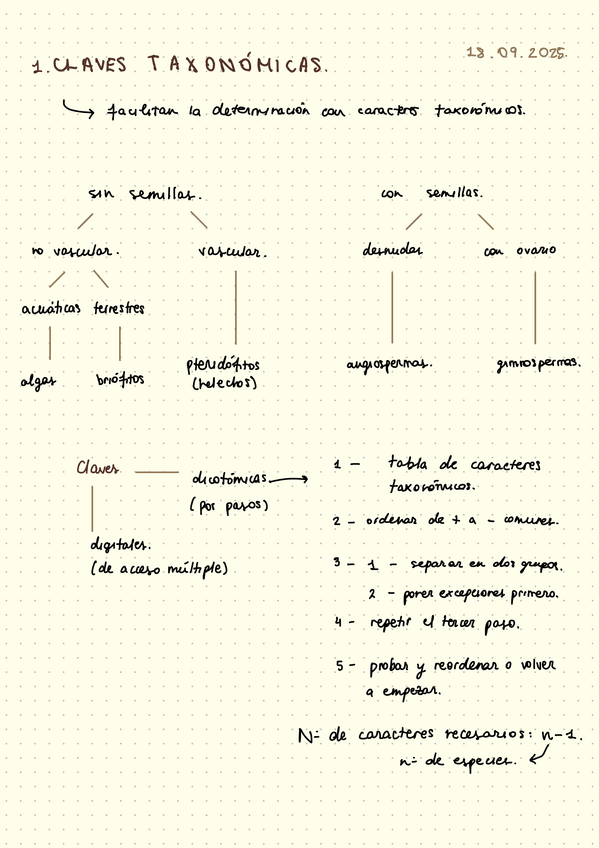 18.09.2025.
1. CLAVES TAXONÓMICAS.
facilitan la determinación con caracteres taxonómicos.
sin semillas. con semillas.
no vascular. vascular. desnudas con ovario
acuáticas terrestres
algas briófitos pteridófitos (helechos) angiospermas. gimnospermas.
Claves
dicotómicas
(por pasos)
digitales.
(de acceso múltiple)
1 - tabla de caracteres
taxonómicos.
2 - ordenar de + a - comunes.
3 - 1 - separar en dos grupos.
2 - poner excepciones primero.
4 - repetir el tercer paso.
5 - probar y reordenar o volver
a empezar.
Nº de caracteres necesarios: n-1.
nº de especies.